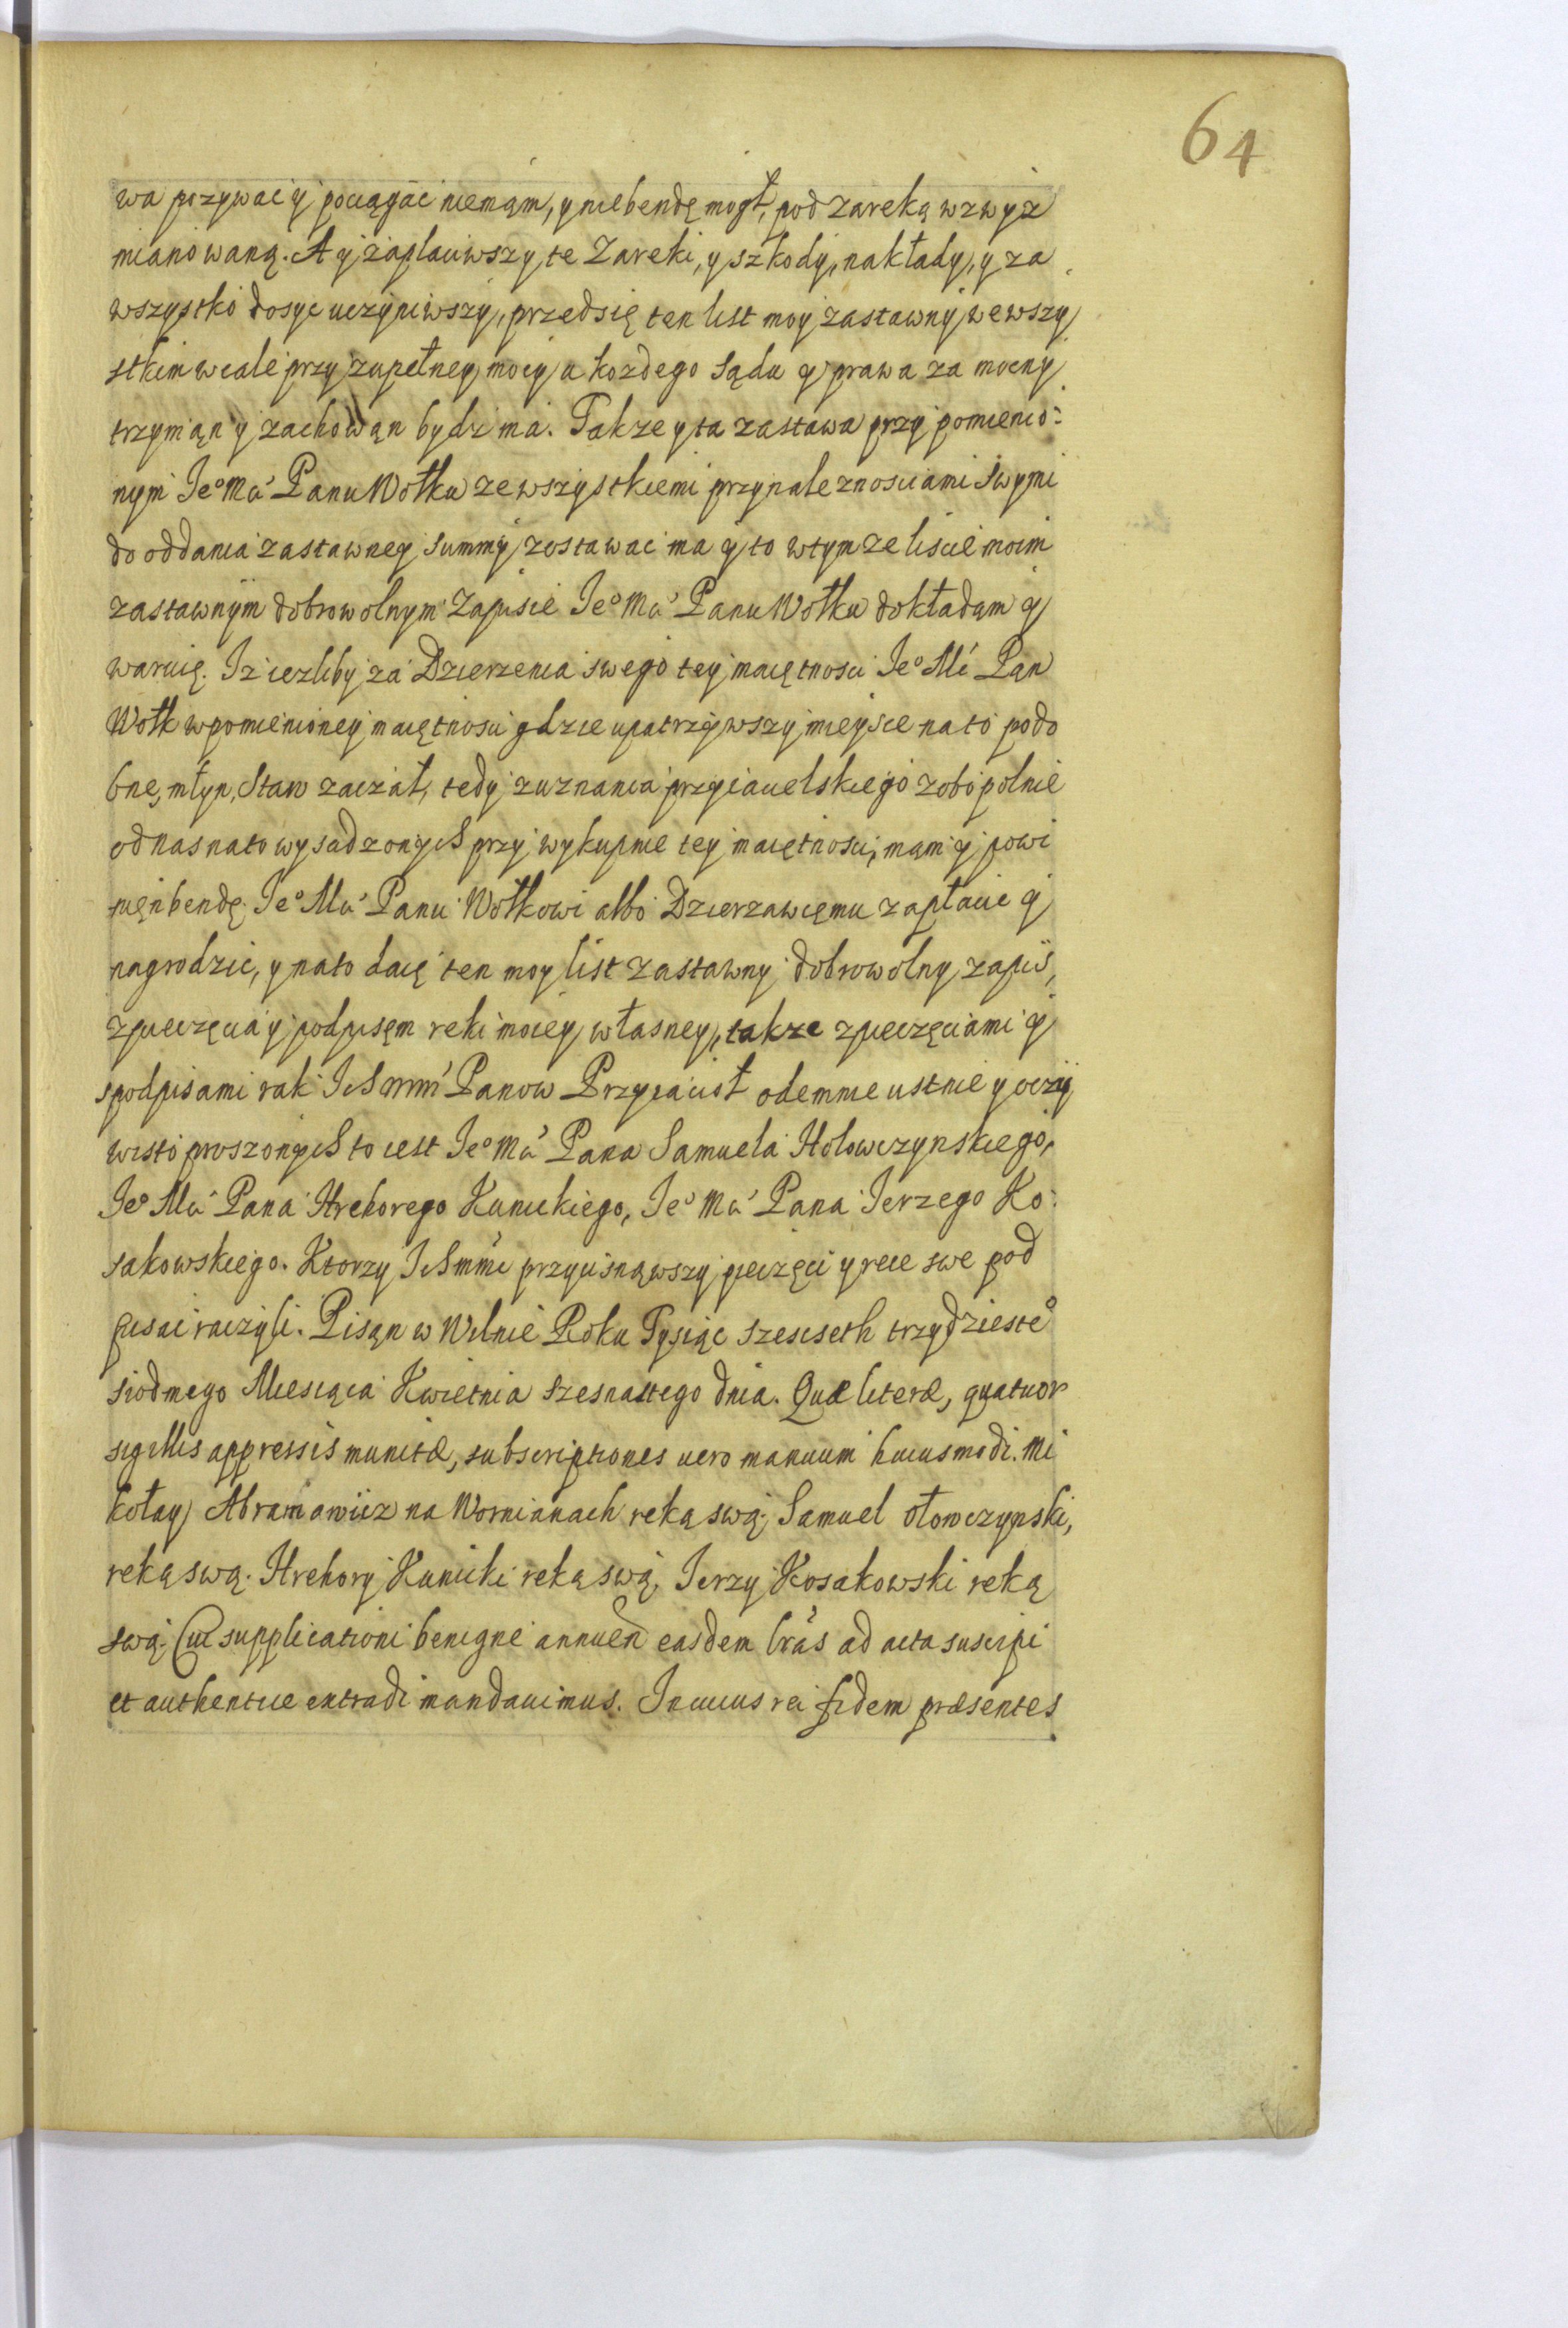 64
wa pozywac y pociągac niemąm, y niebendę mogł, pod zareką wzwyż
mianowaną. A y zaplaciwszy te Zareki, y szkody, nakłady, y za
wszystko dosyc uczyniwszy, przedsię ten list moy zastawny wewszy
stkim wcale przy zupełney mocy u kozdego sądu y prawa za mocny
trzymąn y zachowąn bydz ma. Takze y ta zastawa przy pomienio:
nym Jeº Mci Panu Wołku ze wszystkiemi przynaleznosciami swymi
do oddania zastawney summy zostawac ma y to wtym ze liscie moim
zastawnym dobrowolnym Zapisie Jeº Mci Panu Wołku dokładąm y
waruię. Iz iezliby za Dzierzenia swego tey maiętnosci Jeº Mć Pąn
Wołk wpomienioney maiętnosci gdzie upatrzywszy mieysce na to podo
bne, młyn, Staw zaiząt, tedy zuznania przyiacielskiego zobopolnie
od nas nato wysadzonych przy wykupnie tey maiętnosci, mąm y powi
nięn bendę Jeº Mci Panu Wołkowi albo Dzierzawcięmu zapłacic y
nagrodzic, y nato daię ten moy list zastawny dobrowolny zapis,
zpieczęcią y podpisęm reki moiey własney, takze zpieczęciami y
spodpisami rak Ich Mm Panow Przyiacioł odemnie ustnie y oczy
wisto proszonych to iest Jeº Mci Pana Samuela Holowczynskiego,
Jeº Mci Pana Hrehorego Kunickiego, Jeº Mci Pana Jerzego Ko:
sakowskiego. Ktorzy Ich Mmci przycisnąwszy pieczęci y rece swe pod
pisac raczyli. Pisąn w Wilnie Roku Tysiąc szescseth trzydziesteº
siodmego Miesiąca Kwietnia szesnastego dnia. Quæ literæ, quatuor
sigillis appressis munitæ, subscriptiones uero manuum huiusmodi. Mi
kołay Abramawicz na Wornianach reką swą, Samuel ołowczynski,
reką swą. Hrehory Kunicki reką swą, Jerzy Kosakowski reką
swą. Cui supplicationi benigne annueñ easdem lrãs ad acta suscipi
et authentice extradi mandauimus. In cuius rei fidem præsentes